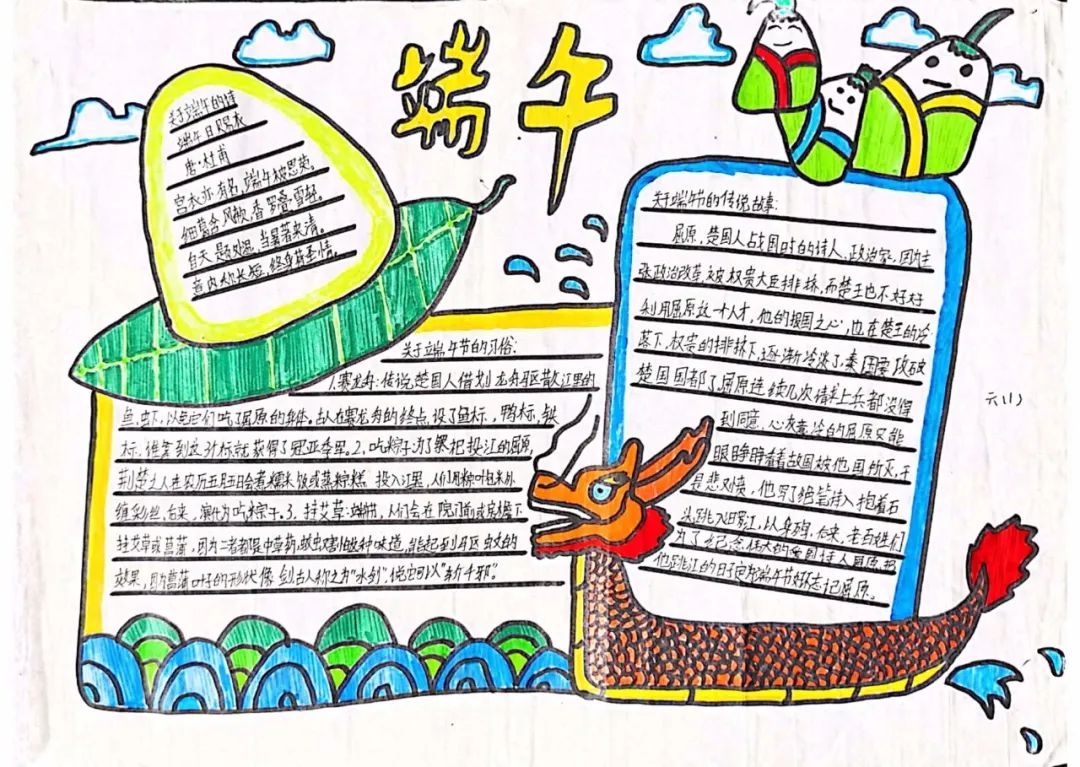 端午
关于端午的诗
端午日赐衣
唐·杜甫
宫衣亦有名,端午被恩荣。
细葛含风软,香罗叠雪轻。
自天题处湿,当暑著来清。
意内称长短,终身荷圣情。
关于端午节的传说故事:
屈原,楚国人战国时的诗人,政治家,因为主
张政治改革,被权贵大臣排挤,而楚王也不好好
利用屈原这一个人才,他的报国之心,也在楚王的冷
落下,权贵的排挤下,逐渐冷淡了秦国要攻破
楚国国都了屈原连续几次请求上兵都没得
到同意,心灰意冷的屈原只能
眼睁睁看着故国被他国所灭,于
是悲愤,他写了绝笔诗入抱着石
头跳入汨罗江,以身殉,后来,老百姓们
为了纪念伟大的爱国诗人屈原,把
他跳江的日子定为端午节好标志记屈原。
关于端午节的习俗:
1.赛龙舟:传说,楚国人借划龙舟驱散江里的
鱼,虾,以免它们吃了屈原的身体。古人在赛龙舟的终点,设了鱼标,鸭标,铁
标,谁拿到这个标就获得了冠亚季军。2、吃粽子:为了祭祀投江的屈原,
荆楚土人在农历五月五日会煮糯米饭或蒸粽糕投入江里,人们用粽叶包米外
缠彩丝,后来,演化为吃粽子。3、挂艾草:端午节,人们会在院门前或房檐下
挂艾草或菖蒲,因为二者都是中草药,蚊虫害怕这种味道,能起到驱虫蚊的
效果,因为菖蒲叶子的形状像剑古人称之为"水剑",说它可以"斩千邪"。